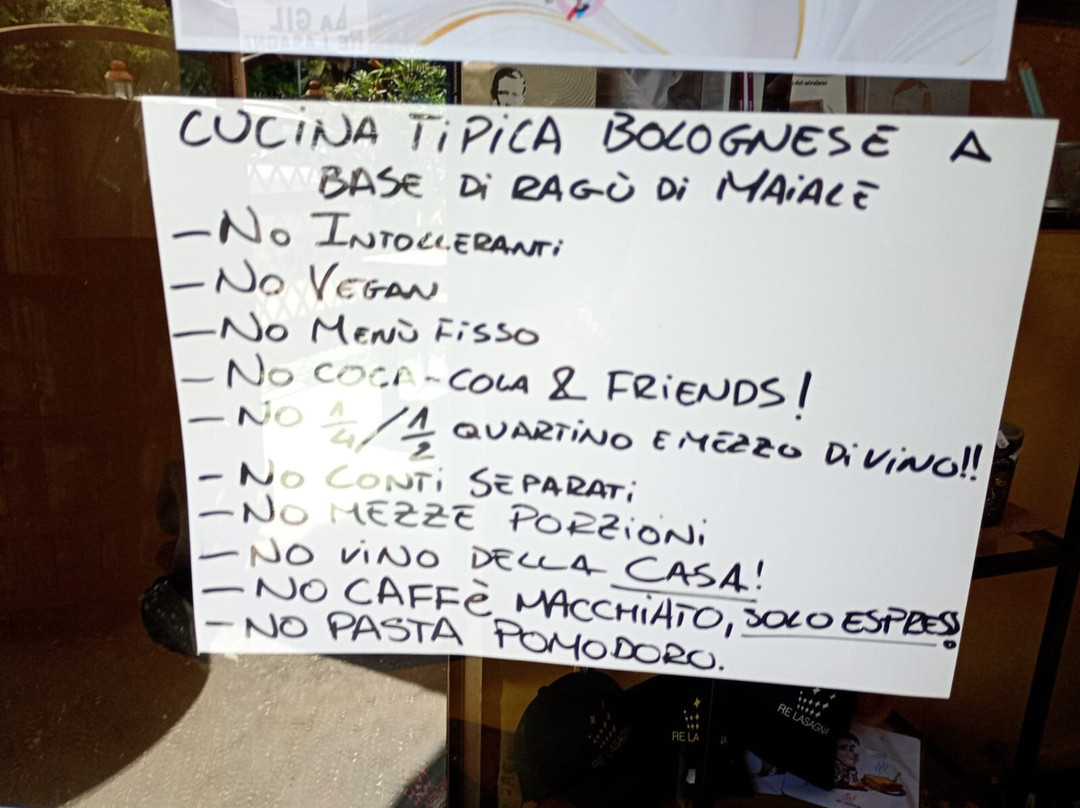 CUCINA TIPICA BOLOGNESE A
BASE DI RAGÙ DI MAIALE
- NO INTOLLERANTI
- NO VEGAN
- NO MENÙ FISSO
- NO COCA-COLA & FRIENDS!
- NO 1/4 / 1/2 QUARTINO E MEZZO DI VINO!!
- NO CONTI SEPARATI
- NO MEZZE PORZIONI
- NO VINO DELLA CASA!
- NO CAFFÈ MACCHIATO, SOLO ESPRESS!
- NO PASTA POMODORO.
RE LA
RE LASAGN